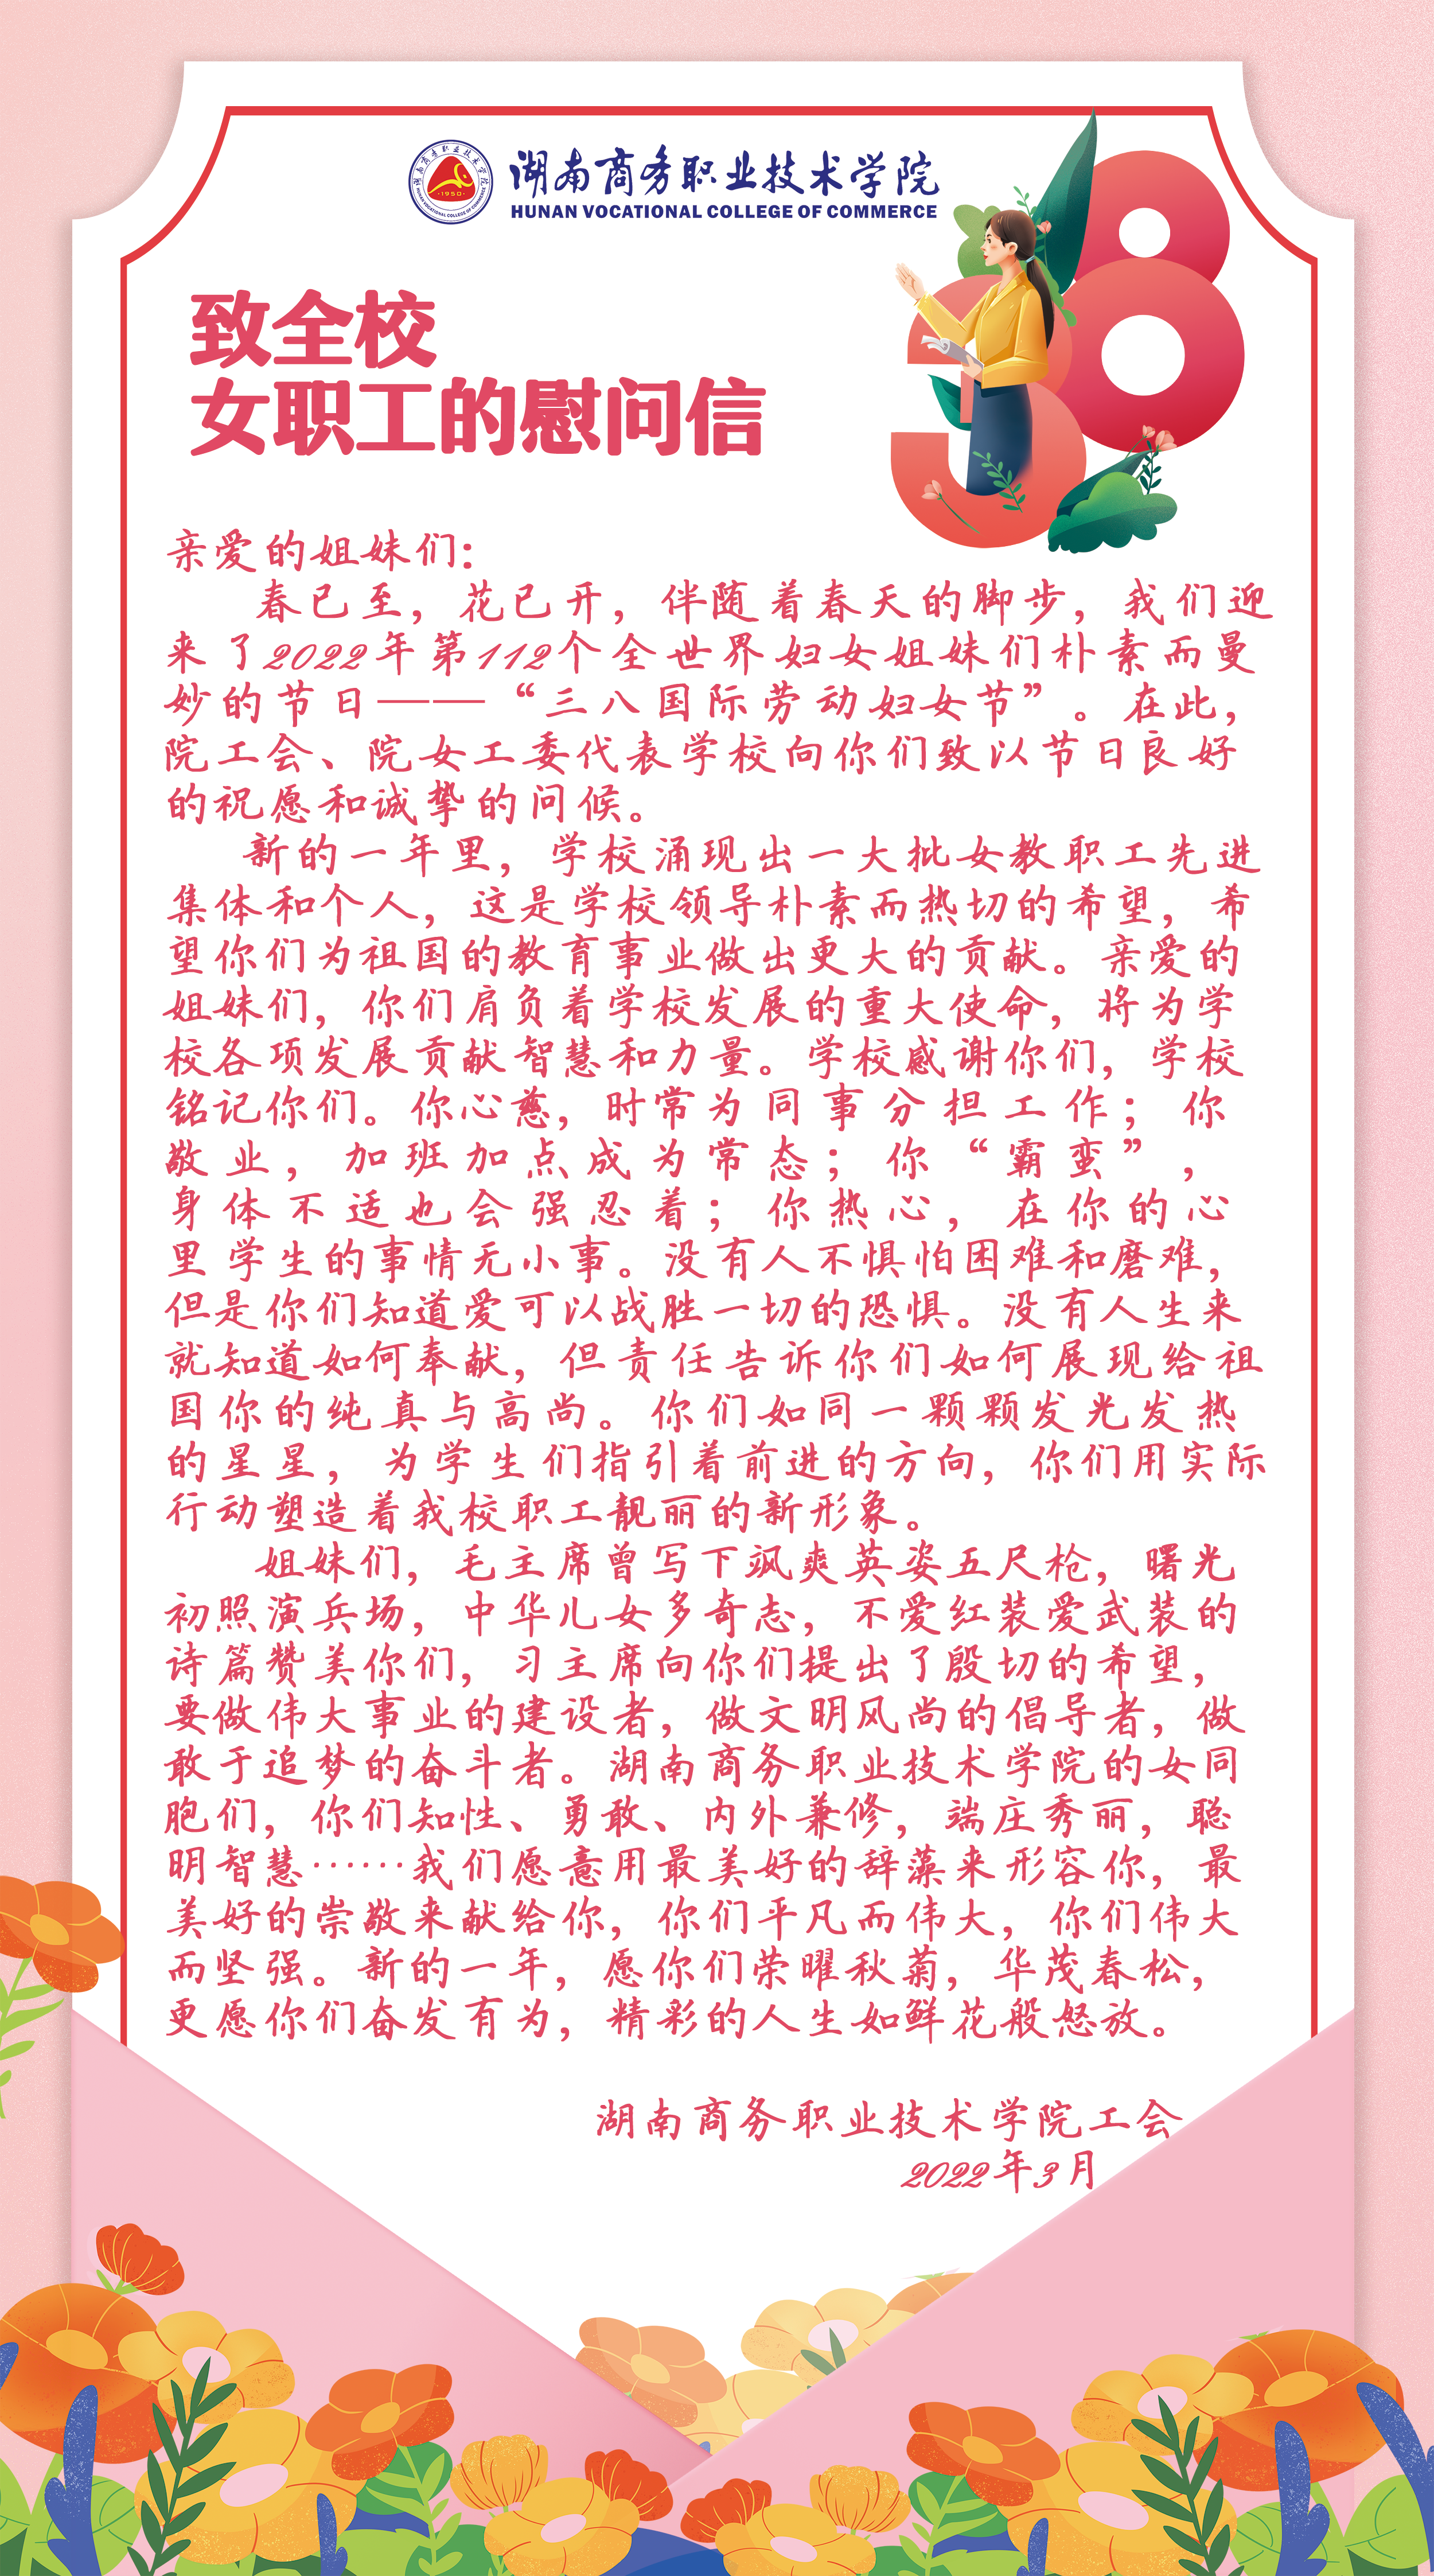 湖南商务职业技术学院
HUNAN VOCATIONAL COLLEGE OF COMMERCE
湖南商务职业技术学院
HUNAN VOCATIONAL COLLEGE OF COMMERCE
·1950·
38
致全校
女职工的慰问信
亲爱的姐妹们:
春已至，花已开，伴随着春天的脚步，我们迎
来了2022年第112个全世界妇女姐妹们朴素而曼
妙的节日——“三八国际劳动妇女节”。在此，
院工会、院女工委代表学校向你们致以节日良好
的祝愿和诚挚的问候。
新的一年里，学校涌现出一大批女教职工先进
集体和个人，这是学校领导朴素而热切的希望，希
望你们为祖国的教育事业做出更大的贡献。亲爱的
姐妹们，你们肩负着学校发展的重大使命，将为学
校各项发展贡献智慧和力量。学校感谢你们，学校
铭记你们。你心慈，时常为同事分担工作；你
敬业，加班加点成为常态；你“霸蛮”，
身体不适也会强忍着；你热心，在你的心
里学生的事情无小事。没有人不惧怕困难和磨难，
但是你们知道爱可以战胜一切的恐惧。没有人生来
就知道如何奉献，但责任告诉你们如何展现给祖
国你的纯真与高尚。你们如同一颗颗发光发热
的星星，为学生们指引着前进的方向，你们用实际
行动塑造着我校职工靓丽的新形象。
姐妹们，毛主席曾写下飒爽英姿五尺枪，曙光
初照演兵场，中华儿女多奇志，不爱红装爱武装的
诗篇赞美你们，习主席向你们提出了殷切的希望，
要做伟大事业的建设者，做文明风尚的倡导者，做
敢于追梦的奋斗者。湖南商务职业技术学院的女同
胞们，你们知性、勇敢、内外兼修，端庄秀丽，聪
明智慧……我们愿意用最美好的辞藻来形容你，最
美好的崇敬来献给你，你们平凡而伟大，你们伟大
而坚强。新的一年，愿你们荣曜秋菊，华茂春松，
更愿你们奋发有为，精彩的人生如鲜花般怒放。
湖南商务职业技术学院工会
2022年3月